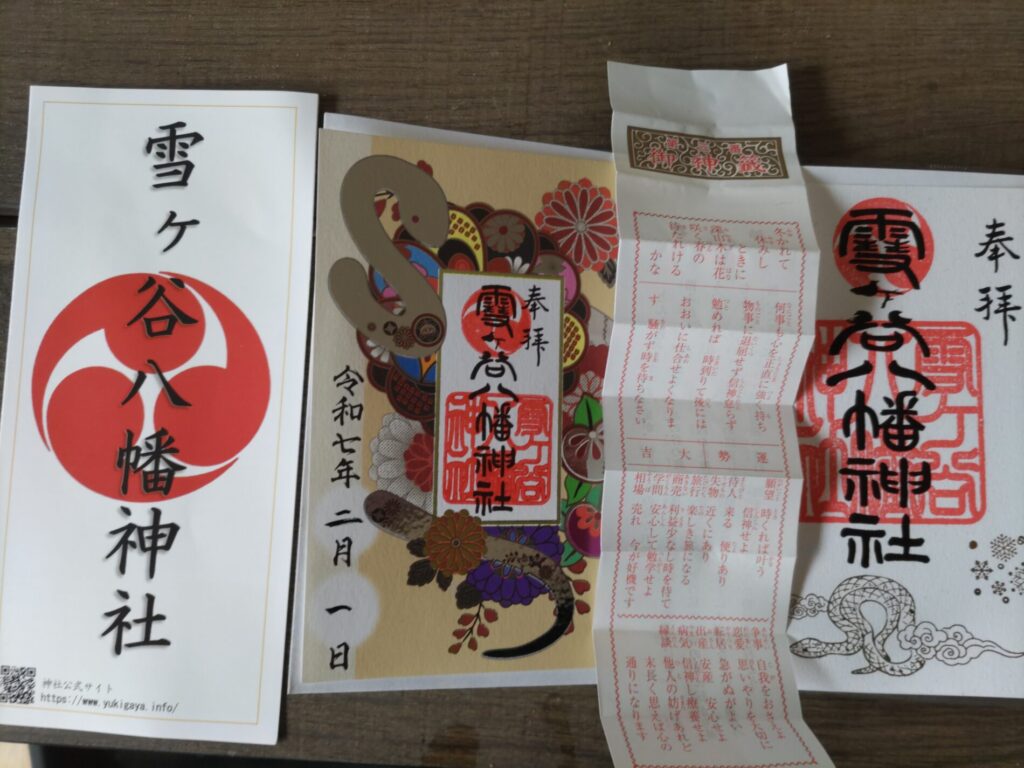 雪ヶ谷八幡神社
神社公式サイト
https://www.yukigaya.info/
奉拝
雪ヶ谷八幡神社
令和七年 二月 一日
御神籤
冬かれて
休みし
ときに
深山木は花
咲く春の
待たれける
かな
何事も心を正直に強く持ち
物事に退屈せず信神怠らず
勉めれば 時到りて後には
おおいに仕合せよくなりま
す 騒がず時を待ちなさい
運勢 大吉
願望 時くれば叶う
信神せよ
待人 来る 便りあり
失物 近くにあり
旅行 楽しき旅になる
商売 利益少なし時を待て
学問 安心して勉学せよ
相場 売れ 今が好機です
争事 自我をおさえよ
恋愛 思いやりを大切に
転居 急がぬがよい
出産 安産 安心せよ
病気 信神し療養せよ
縁談 他人の妨げあれど
末長く思えば心の
通りになります
奉拝
雪ヶ谷八幡神社